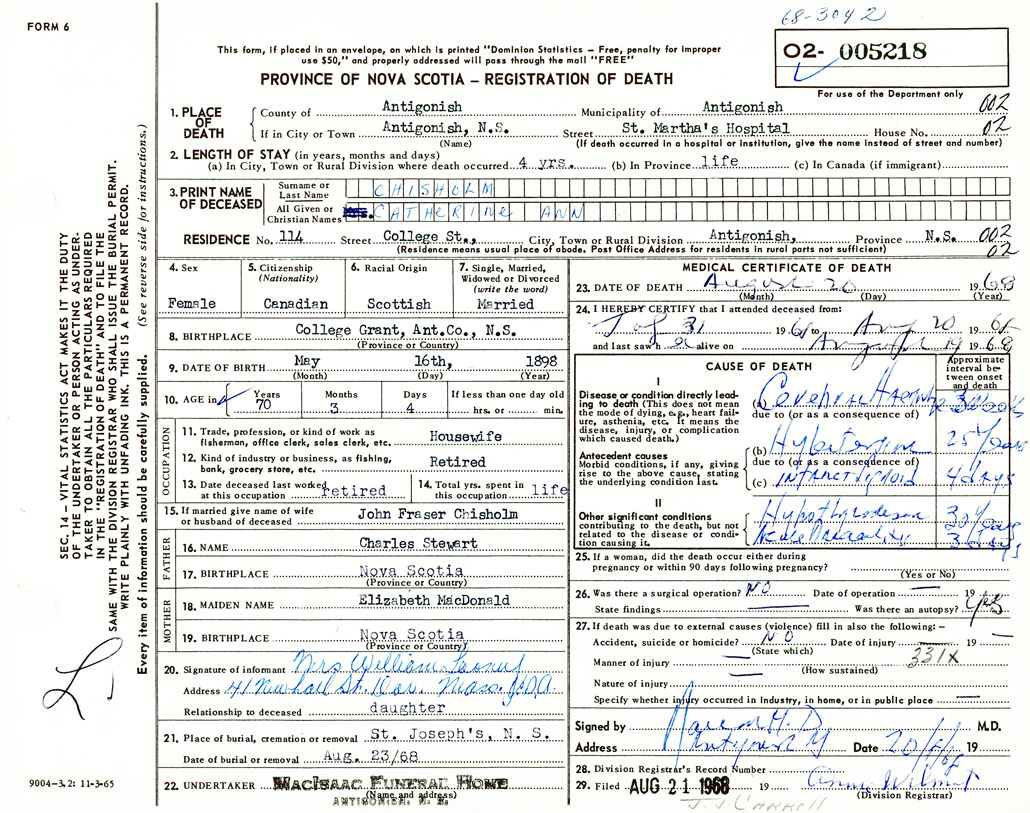 68-3042
FORM 6
02- 005218
This form, if placed in an envelope, on which is printed "Dominion Statistics – Free, penalty for improper
use $50," and properly addressed will pass through the mail "FREE"
PROVINCE OF NOVA SCOTIA – REGISTRATION OF DEATH
For use of the Department only
1. PLACE OF DEATH
County of Antigonish Municipality of Antigonish 002
If in City or Town Antigonish, N.S. Street St. Martha's Hospital House No. 02
(Name) (If death occurred in a hospital or institution, give the name instead of street and number)
2. LENGTH OF STAY (in years, months and days)
(a) In City, Town or Rural Division where death occurred 4 yrs. (b) In Province life (c) In Canada (if immigrant)
3. PRINT NAME OF DECEASED
Surname or Last Name CHISHOLM
All Given or Christian Names Mrs. CATHERINE ANN
RESIDENCE No. 114 Street College St., City, Town or Rural Division Antigonish, Province N.S. 002
(Residence means usual place of abode. Post Office Address for residents in rural parts not sufficient) 02
4. Sex
Female
5. Citizenship
(Nationality)
Canadian
6. Racial Origin
Scottish
7. Single, Married,
Widowed or Divorced
(write the word)
Married
8. BIRTHPLACE College Grant, Ant.Co., N.S.
(Province or Country)
9. DATE OF BIRTH May 16th, 1898
(Month) (Day) (Year)
10. AGE in Years Months Days If less than one day old
70 3 4 hrs. or min.
OCCUPATION
11. Trade, profession, or kind of work as
fisherman, office clerk, sales clerk, etc. Housewife
12. Kind of industry or business, as fishing,
bank, grocery store, etc. Retired
13. Date deceased last worked
at this occupation retired
14. Total yrs. spent in
this occupation life
15. If married give name of wife
or husband of deceased John Fraser Chisholm
FATHER
16. NAME Charles Stewart
17. BIRTHPLACE Nova Scotia
(Province or Country)
MOTHER
18. MAIDEN NAME Elizabeth MacDonald
19. BIRTHPLACE Nova Scotia
(Province or Country)
20. Signature of informant Mrs William
Address 41 Newhall St. Mass.
Relationship to deceased daughter
21. Place of burial, cremation or removal St. Joseph's, N. S.
Date of burial or removal Aug. 23/68
22. UNDERTAKER MacIsaac Funeral Home
(Name and address)
ANTIGONISH, N. S.
MEDICAL CERTIFICATE OF DEATH
23. DATE OF DEATH August 20 1968
(Month) (Day) (Year)
24. I HEREBY CERTIFY that I attended deceased from:
31 19 to Aug 20 19
and last saw h alive on August 19 1968
CAUSE OF DEATH
Approximate
interval between
onset
and death
I
Disease or condition directly leading
to death (This does not mean
the mode of dying, e.g., heart failure,
asthenia, etc. It means the
disease, injury, or complication
which caused death.)
(a) Cerebral
due to (or as a consequence of)
Antecedent causes
Morbid conditions, if any, giving
rise to the above cause, stating
the underlying condition last.
(b) Hypertension 25 years
due to (or as a consequence of)
(c) 4 days
II
Other significant conditions
contributing to the death, but not
related to the disease or condition
causing it.
25. If a woman, did the death occur either during
pregnancy or within 90 days following pregnancy?
(Yes or No)
26. Was there a surgical operation? NO Date of operation — 19
State findings — Was there an autopsy? Yes
27. If death was due to external causes (violence) fill in also the following: –
Accident, suicide or homicide? NO Date of injury — 19 —
(State which) 331X
Manner of injury —
(How sustained)
Nature of injury —
Specify whether injury occurred in industry, in home, or in public place —
Signed by M.D.
Address Antigonish Date 20/8/68 19
28. Division Registrar's Record Number
29. Filed AUG 21 1968 19
(Division Registrar)
J. J. CARROLL
SEC. 14 – VITAL STATISTICS ACT MAKES IT THE DUTY
OF THE UNDERTAKER OR PERSON ACTING AS UNDERTAKER
TO OBTAIN ALL THE PARTICULARS REQUIRED
IN THE "REGISTRATION OF DEATH" AND TO FILE THE
SAME WITH THE DIVISION REGISTRAR WHO SHALL ISSUE THE BURIAL PERMIT.
WRITE PLAINLY WITH UNFADING INK. THIS IS A PERMANENT RECORD.
Every item of information should be carefully supplied. (See reverse side for instructions.)
9004–3.2: 11-3-65